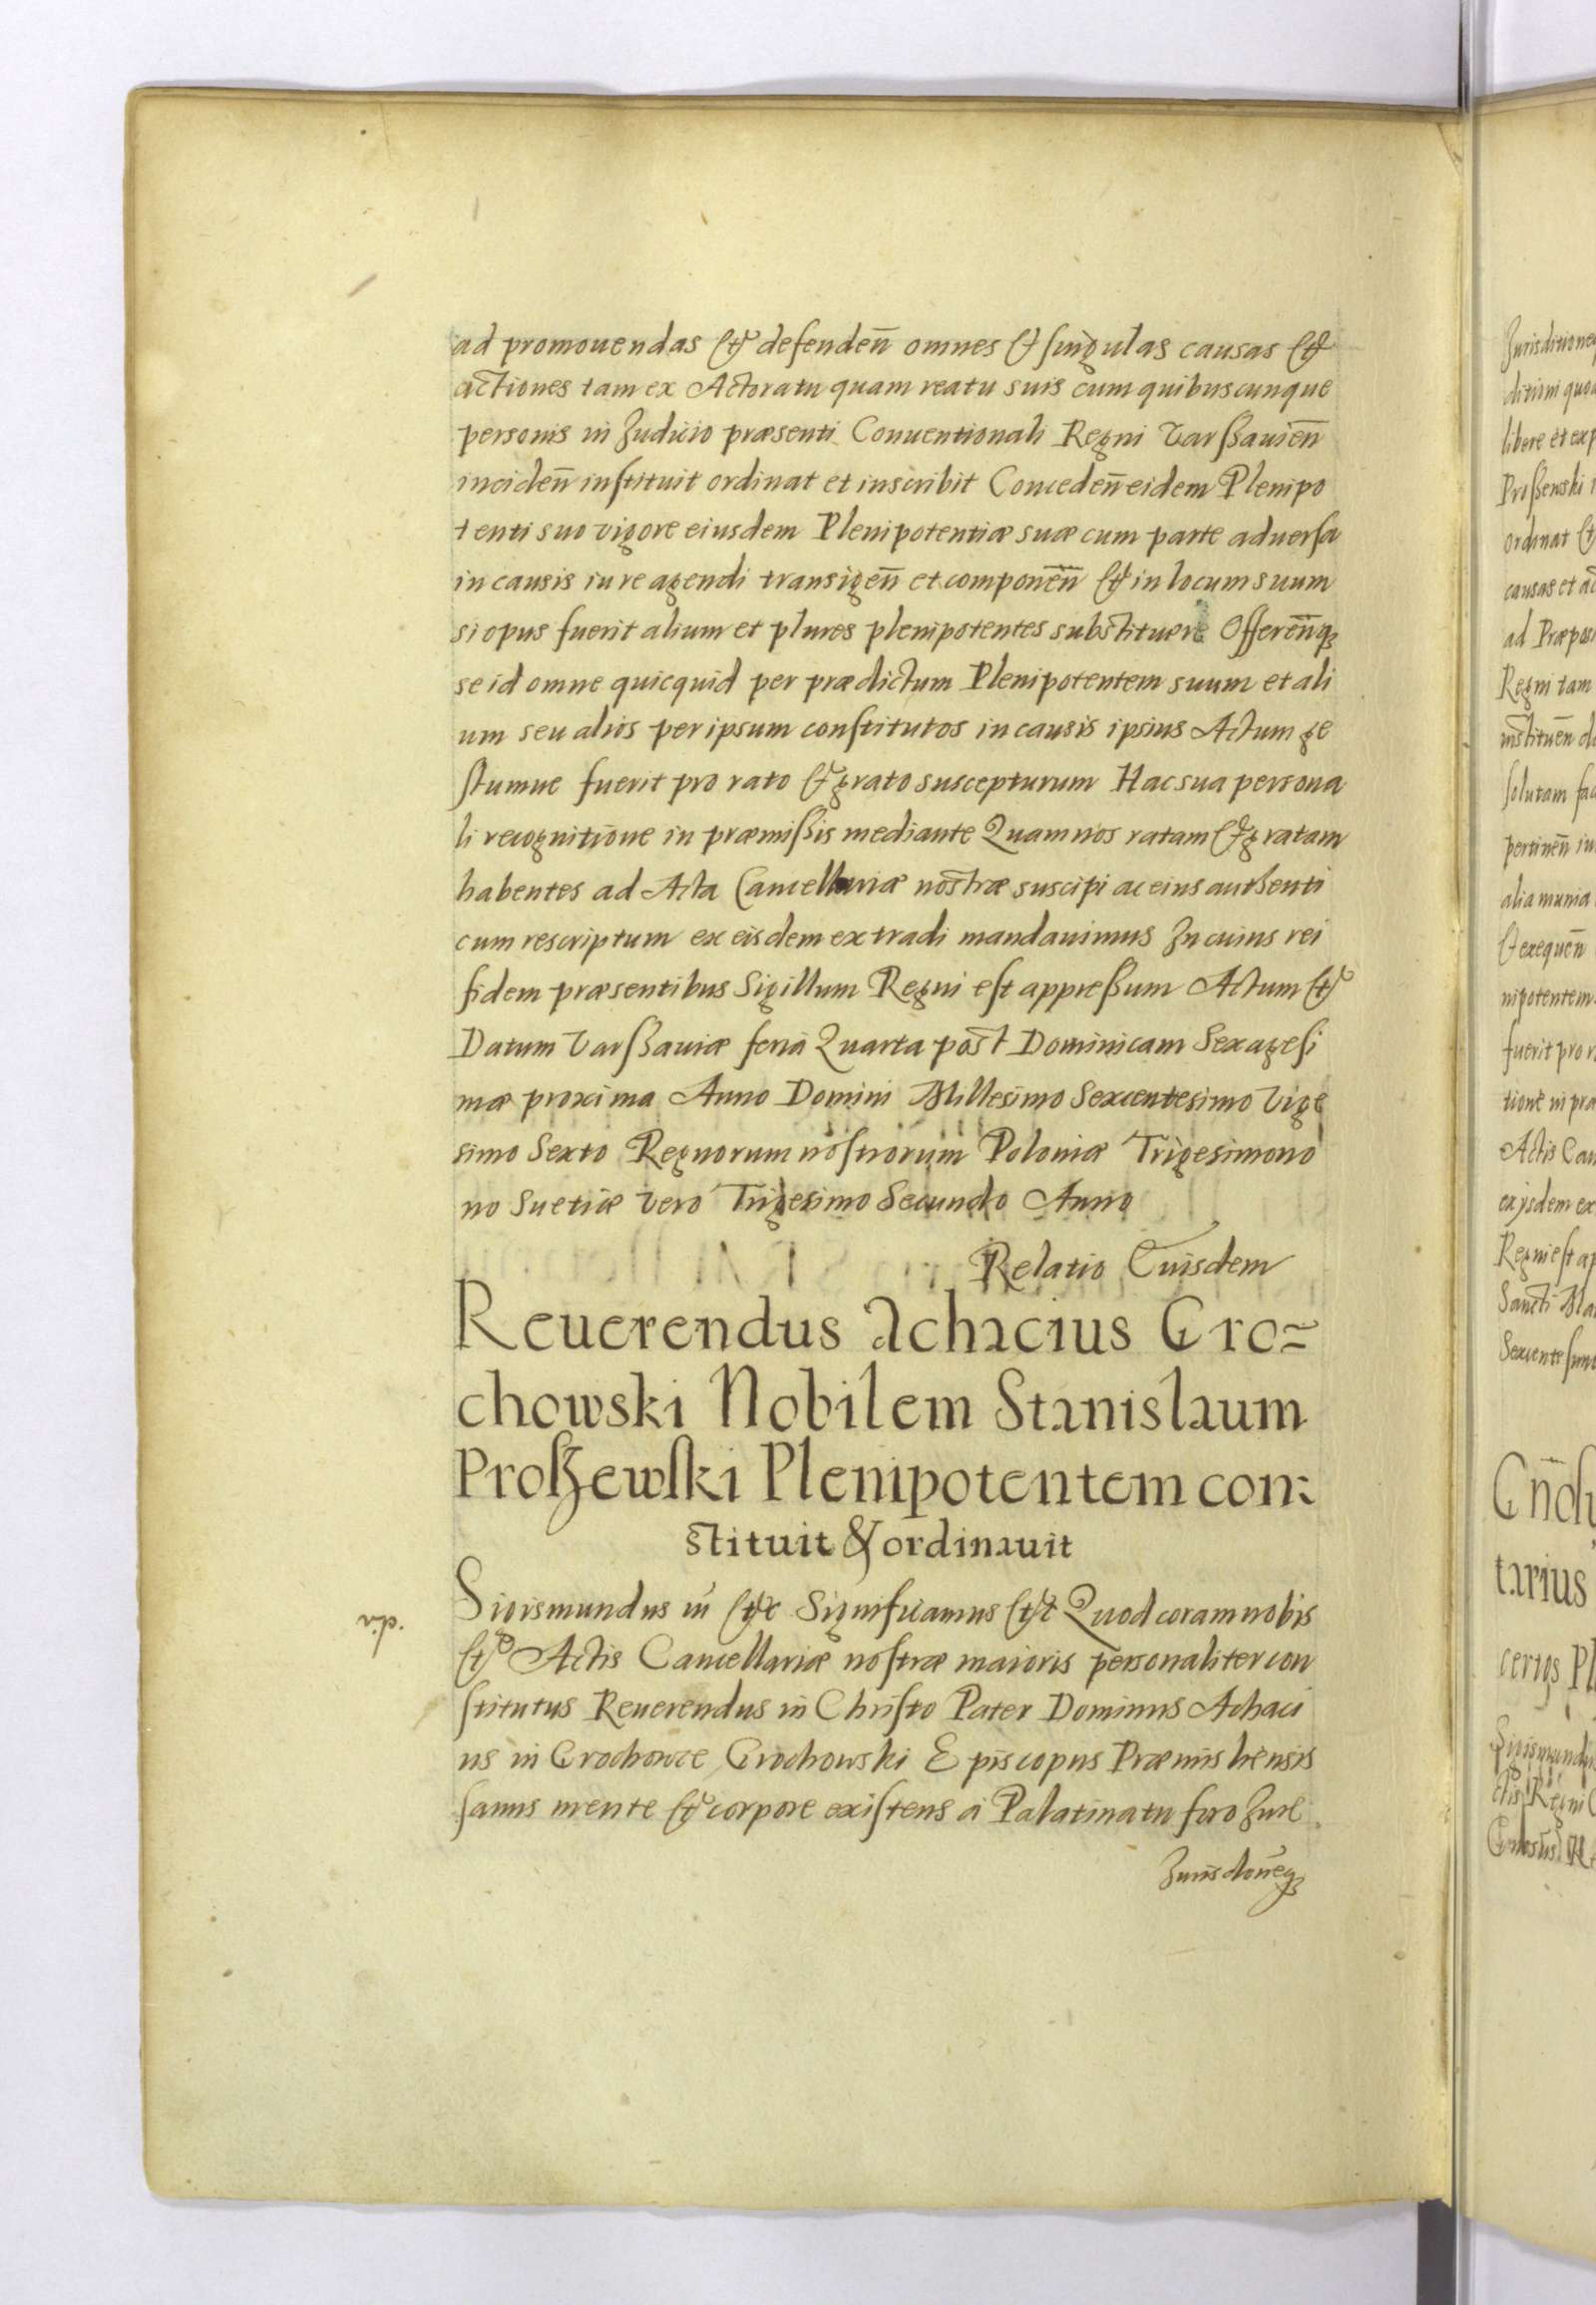 ad promouendas & defendeñ omnes & singulas causas &
actiones tam ex Actoratu quam reatu suis cum quibuscunque
personis in Judicio præsenti Conuentionali Regni Varssauień
incideñ instituit ordinat et inscribit Concedeñ eidem Plenipo
tenti suo vigore eiusdem Plenipotentiæ suæ cum parte aduersa
in causis iure agendi transigeñ et componeñ & in locum suum
si opus fuerit alium et plures plenipotentes substituere Offereñq3
se id omne quicquid per prædictum Plenipotentem suum et ali
um seu alios per ipsum constitutos in causis ipsius Actum ge
stumue fuerit pro rato & grato suscepturum Hac sua persona
li recognitione in præmissis mediante Quam nos ratam & gratam
habentes ad Acta Cancellariæ nostræ suscipi ac eius authenti
cum rescriptum ex eisdem extradi mandauimus In cuius rei
fidem præsentibus Sigillum Regni est appressum Actum &
Datum Varssauiæ feria Quarta post Dominicam Sexagesi
mæ proxima Anno Domini Millesimo Sexcentesimo Vige
simo Sexto Regnorum nostrorum Poloniæ Trigesimono
no Suetiæ vero Trigesimo Secundo Anno
Relatio Cuisdem
Reuerendus Achacius Gro=
chowski Nobilem Stanislaum
Proszewski Plenipotentem con:
stituit & ordinauit
Sigismundus iii &c Significamus &c Quod coram nobis
& Actis Cancellariæ nostræ maioris personaliter con
stitutus Reuerendus in Christo Pater Dominus Achaci
us in Grochowce Grochowski Episcopus Præmisliensis
sanus mente & corpore existens a Palatinatu foro Jure
Jurisdoneq3
Jurisditione
libere et exp
ordinat &
causas et ac
Regni tam
solutam fac
alia munia
& exequeñ
nipotentem
fuerit pro r
tione in præ
Actis Can
Regni est ap
tarius